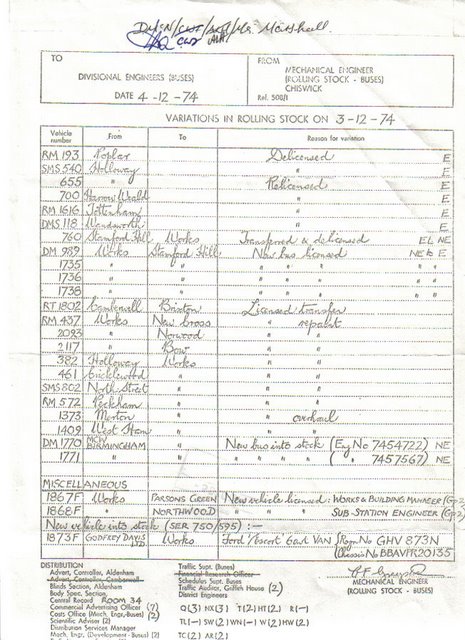 Mr. Marshall
TO FROM
DIVISIONAL ENGINEERS (BUSES) MECHANICAL ENGINEER
(ROLLING STOCK - BUSES)
CHISWICK
DATE 4-12-74 Ref. 508/1
VARIATIONS IN ROLLING STOCK ON 3-12-74
Vehicle number From To Reason for variation
RM 193 Poplar Delicensed E
SMS 540 Holloway " E
655 " Relicensed E
700 Harrow Weald " E
RM 1616 Tottenham " E
DMS 118 Wandsworth " E
760 Stamford Hill Works Transferred & delicensed EL NE
DM 989 Works Stamford Hill New bus licensed NE to E
1735 " " " " " " "
1736 " " " " " " "
1738 " " " " " " "
RT 1802 Camberwell Brixton Licensed transfer
RM 437 Works New Cross " repaint
2023 " Norwood " "
2117 " Bow " "
382 Holloway Works " "
461 Cricklewood " " "
SMS 802 North Street " " "
RM 572 Peckham " " "
1373 Merton " " overhaul
1409 West Ham " " "
DM 1770 MCW BIRMINGHAM " New bus into stock (Eng No 7454722) NE
1771 " " " " " " ( " 7457567) NE
MISCELLANEOUS
1867F Works PARSONS GREEN New vehicle licensed: WORKS & BUILDING MANAGER (Gp2)
1868F " NORTHWOOD " " " SUB-STATION ENGINEER (Gp2)
New vehicle into stock (SER 750/595) :-
1873F GODFREY DAVIS LTD Works Ford Escort 6cwt VAN Regn No GHV 873N
Chassis No BBAVPR20135
DISTRIBUTION
Advert. Controller, Aldenham
Advert. Controller, Camberwell
Blinds Section, Aldenham
Body Spec. Section,
Central Record ROOM 34
Commercial Advertising Officer (7)
Costs Office (Mech. Engr. Buses) (2)
Scientific Adviser (2)
Distribution Services Manager
Mech. Engr. (Development - Buses) (2)
Traffic Supt. (Buses)
Financial Research Officer
Schedules Supt. Buses
Traffic Auditor, Griffith House (2)
District Engineers
Q(3) NX(3) T(2) HT(2) R(-)
TL(-) SW(2) WN(-) W(2) HW(2)
TC(2) AR(2)
MECHANICAL ENGINEER
(ROLLING STOCK - BUSES)